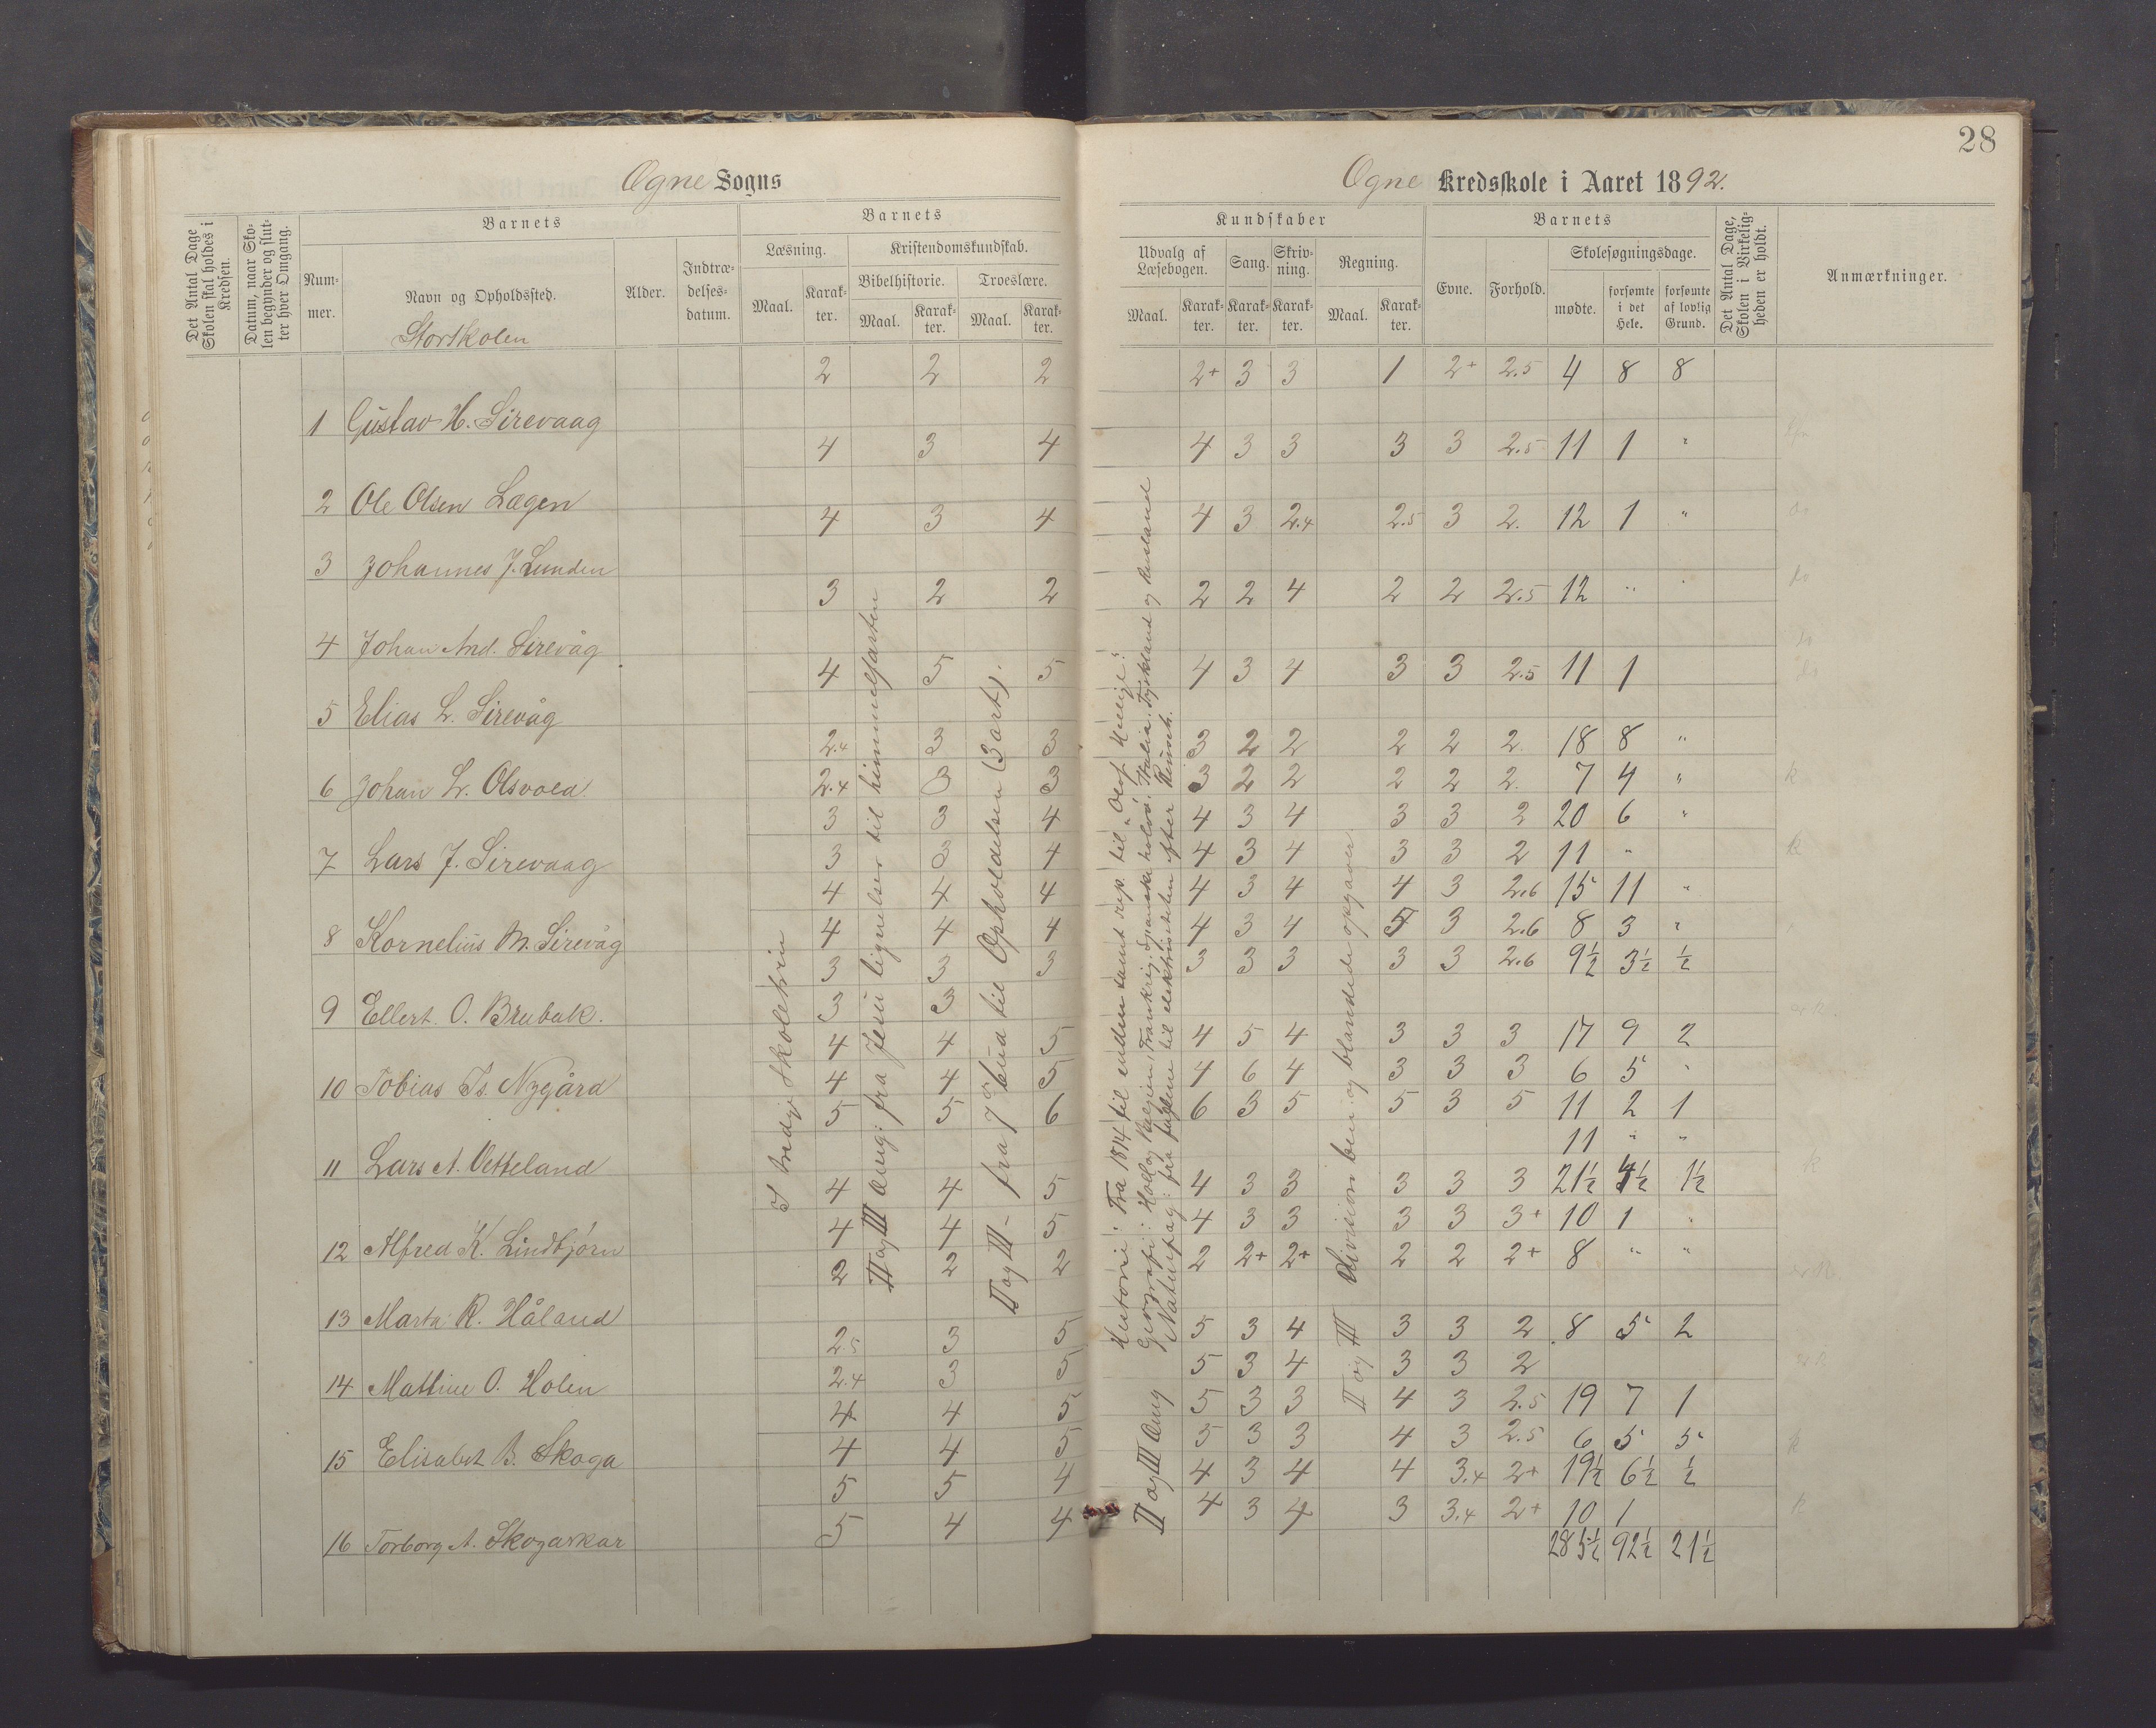 28
Ogne Sogns
Ogne Kredsskole i Aaret 1892.
Det Antal Dage Skolen skal holdes i Kredsen.
Datum, naar Skolen begynder og slutter hver Omgang.
Barnets
Nummer.
Navn og Opholdssted.
Storskolen
Alder.
Indtrædelsesdatum.
Barnets
Læsning.
Maal.
Karakter.
Kristendomskundskab.
Bibelhistorie.
Maal.
Karakter.
Troeslære.
Maal.
Karakter.
Kundskaber
Udvalg af Læsebogen.
Maal.
Karakter.
Sang.
Karakter.
Skrivning.
Karakter.
Regning.
Maal.
Karakter.
Barnets
Evne.
Forhold.
Skolesøgningsdage.
mødte.
forsømte i det Hele.
forsømte af lovlig Grund.
Det Antal Dage, Skolen i Virkeligheden er holdt.
Anmærkninger.
2 2 2 2+ 3 3 1 2+ 2.5 4 8 8
1 Gustav H. Sirevaag
4 3 4 4 3 3 3 3 2.5 11 1 "
2 Ole Olsen Lægen
4 3 4 4 3 2.4 2.5 3 2. 12 1 "
3 Johannes J. Lunden
3 2 2 2 2 4 2 2 2.5 12 "
4 Johan And. Sirevåg
4 5 5 4 3 4 3 3 2.5 11 1
5 Elias L. Sirevåg
2.4 3 3 3 2 2 2 2 2 18 8 "
6 Johan L. Olsvold.
2.4 3 3 3 2 2 2 2 2. 7 4 "
3 3 4 4 3 4 3 3 2 20 6 "
7 Lars J. Sirevaag
3 3 4 4 3 4 3 3 2 11 "
4 4 4 4 3 4 4 3 2.6 15 11 "
8 Kornelius M. Sirevåg
4 4 4 4 3 4 5 3 2.6 8 3 "
3 3 3 3 3 3 3 3 2.6 9½ 3½ ½
9 Ellert O. Brubak.
3 3
4 4 5 4 5 4 3 3 3 17 9 2
10 Tobias Ts. Nygård
4 4 5 4 6 4 3 3 3 6 5 "
5 5 6 6 3 5 5 3 5 11 2 1
11 " "
11 Lars A. Vetteland
4 4 5 4 3 3 3 3 3 21½ 4½ 1½
4 4 5 4 3 3 3 3 3+ 10 1
12 Alfred K. Lindbjørn
2 2 2 2 2+ 2+ 2 2 2+ 8 " "
13 Marta R. Håland
2.5 3 5 5 3 4 3 3 2 8 5 2
14 Mattine O. Holen
2.4 3 5 5 3 4 3 3 2
4 4 5 5 3 3 4 3 2.5 19 7 1
15 Elisabet B. Skoga
4 4 5 5 3 3 4 3 2.5 6 5 5
5 5 4 4 3 4 4 3.4 2+ 19½ 6½ ½
16 Torborg A. Skogarkar
5 4 4 4 3 4 3 3.4 2+ 10 1
285½ 92½ 21½
I tredje skoletrin
II og III Omg: fra Jesu lignelser til himmelfarten
II og III - fra 7de bud til Opholdelsen (3 art).
II og III Omg
Historie: Fra 1814 til enden samt rep. til "Oluf Hellige".
Geografi: Holl. og Belgien, Frankrig, Spanske halvö, Italia. Tyskland og Rusland
Naturfag: fra fuglene til elektrisiteten efter Reinsh.
II og III Division ben. og blandede opgaver